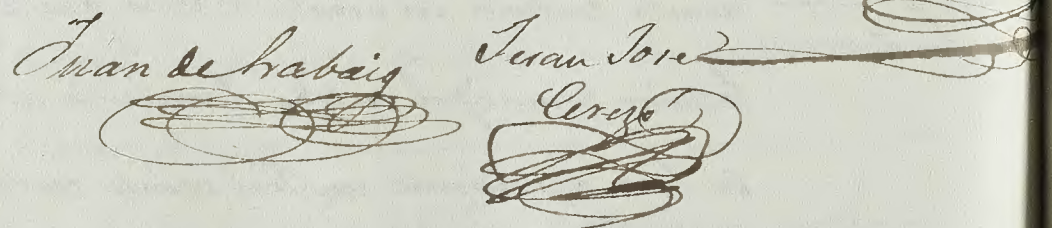 Juan de Trabaig
Juan Jose
Cerezo